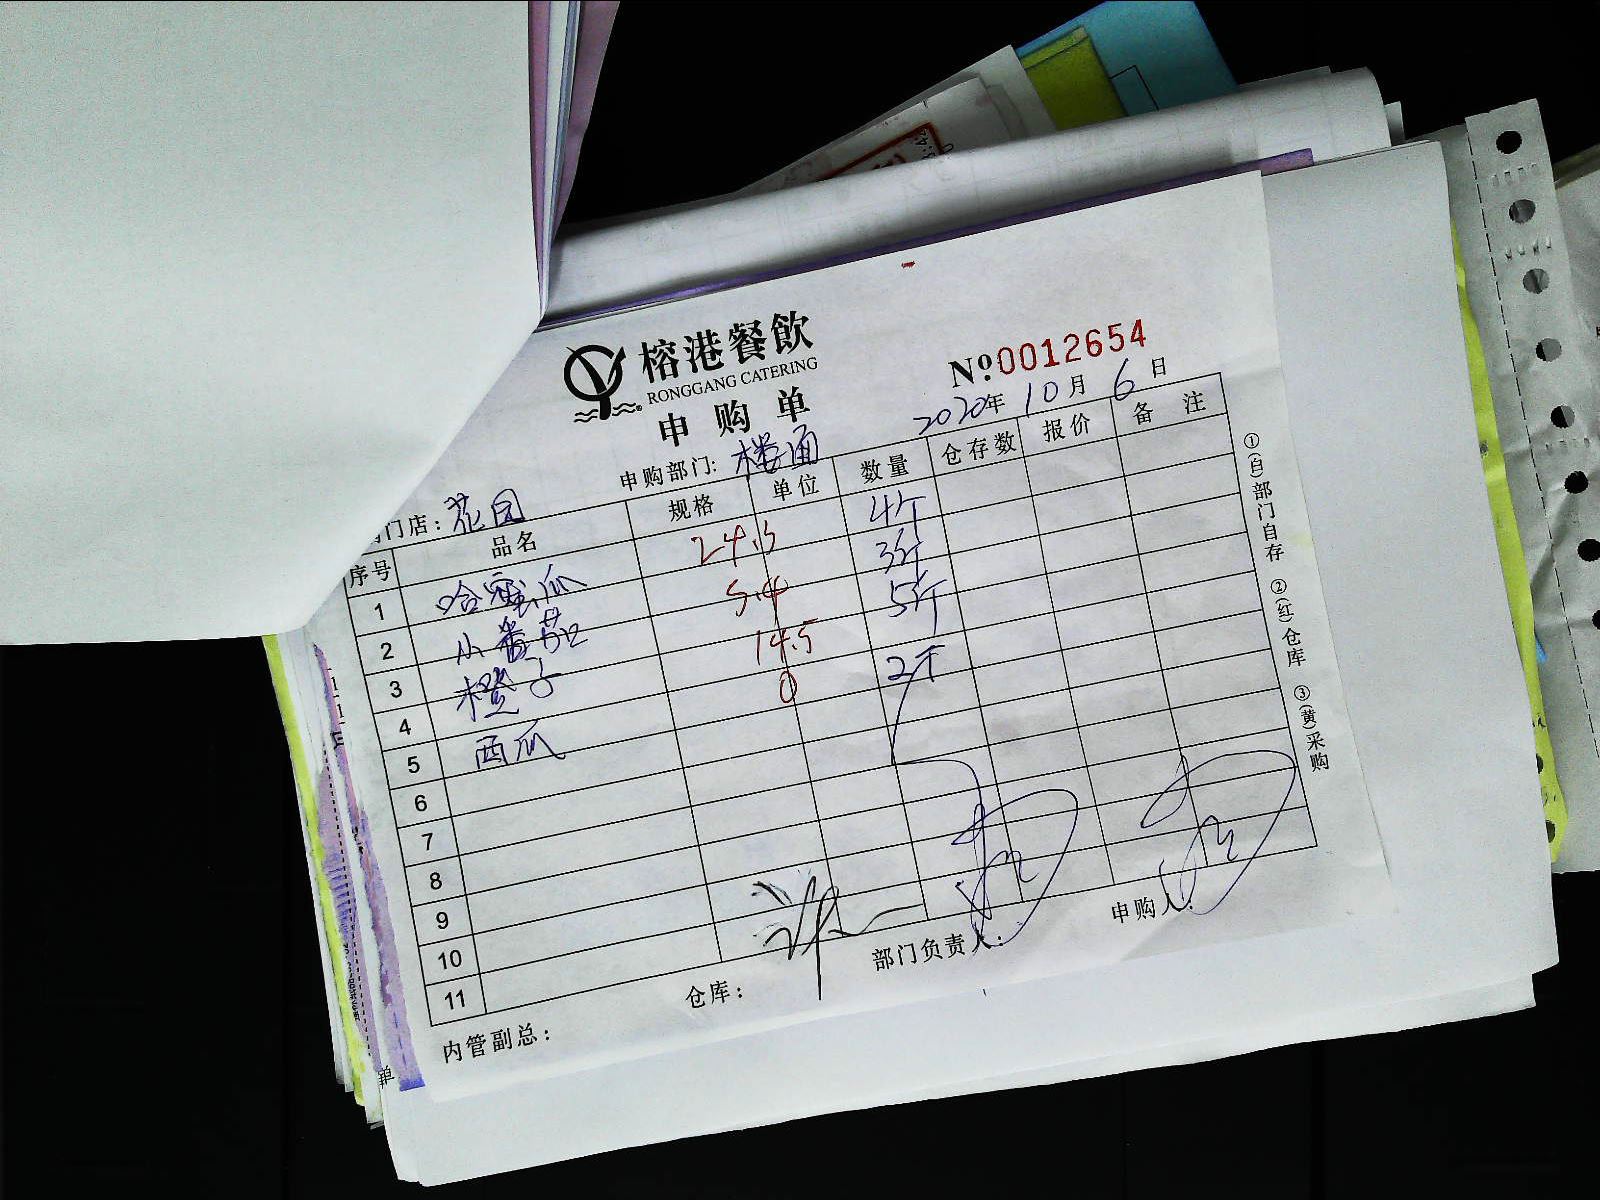 榕港餐飲
RONGGANG CATERING
申购单
№0012654
2020年10月6日
门店：花园 申购部门：楼面
序号 品名 规格 单位 数量 仓存数 报价 备注
1 哈密瓜 24.5 4斤
2 小番茄 5.4 3斤
3 橙子 14.5 5斤
4 西瓜 0 2斤
5
6
7
8
9
10
11
①(白)部门自存 ②(红)仓库 ③(黄)采购
内管副总： 仓库： 部门负责人： 申购人：
单